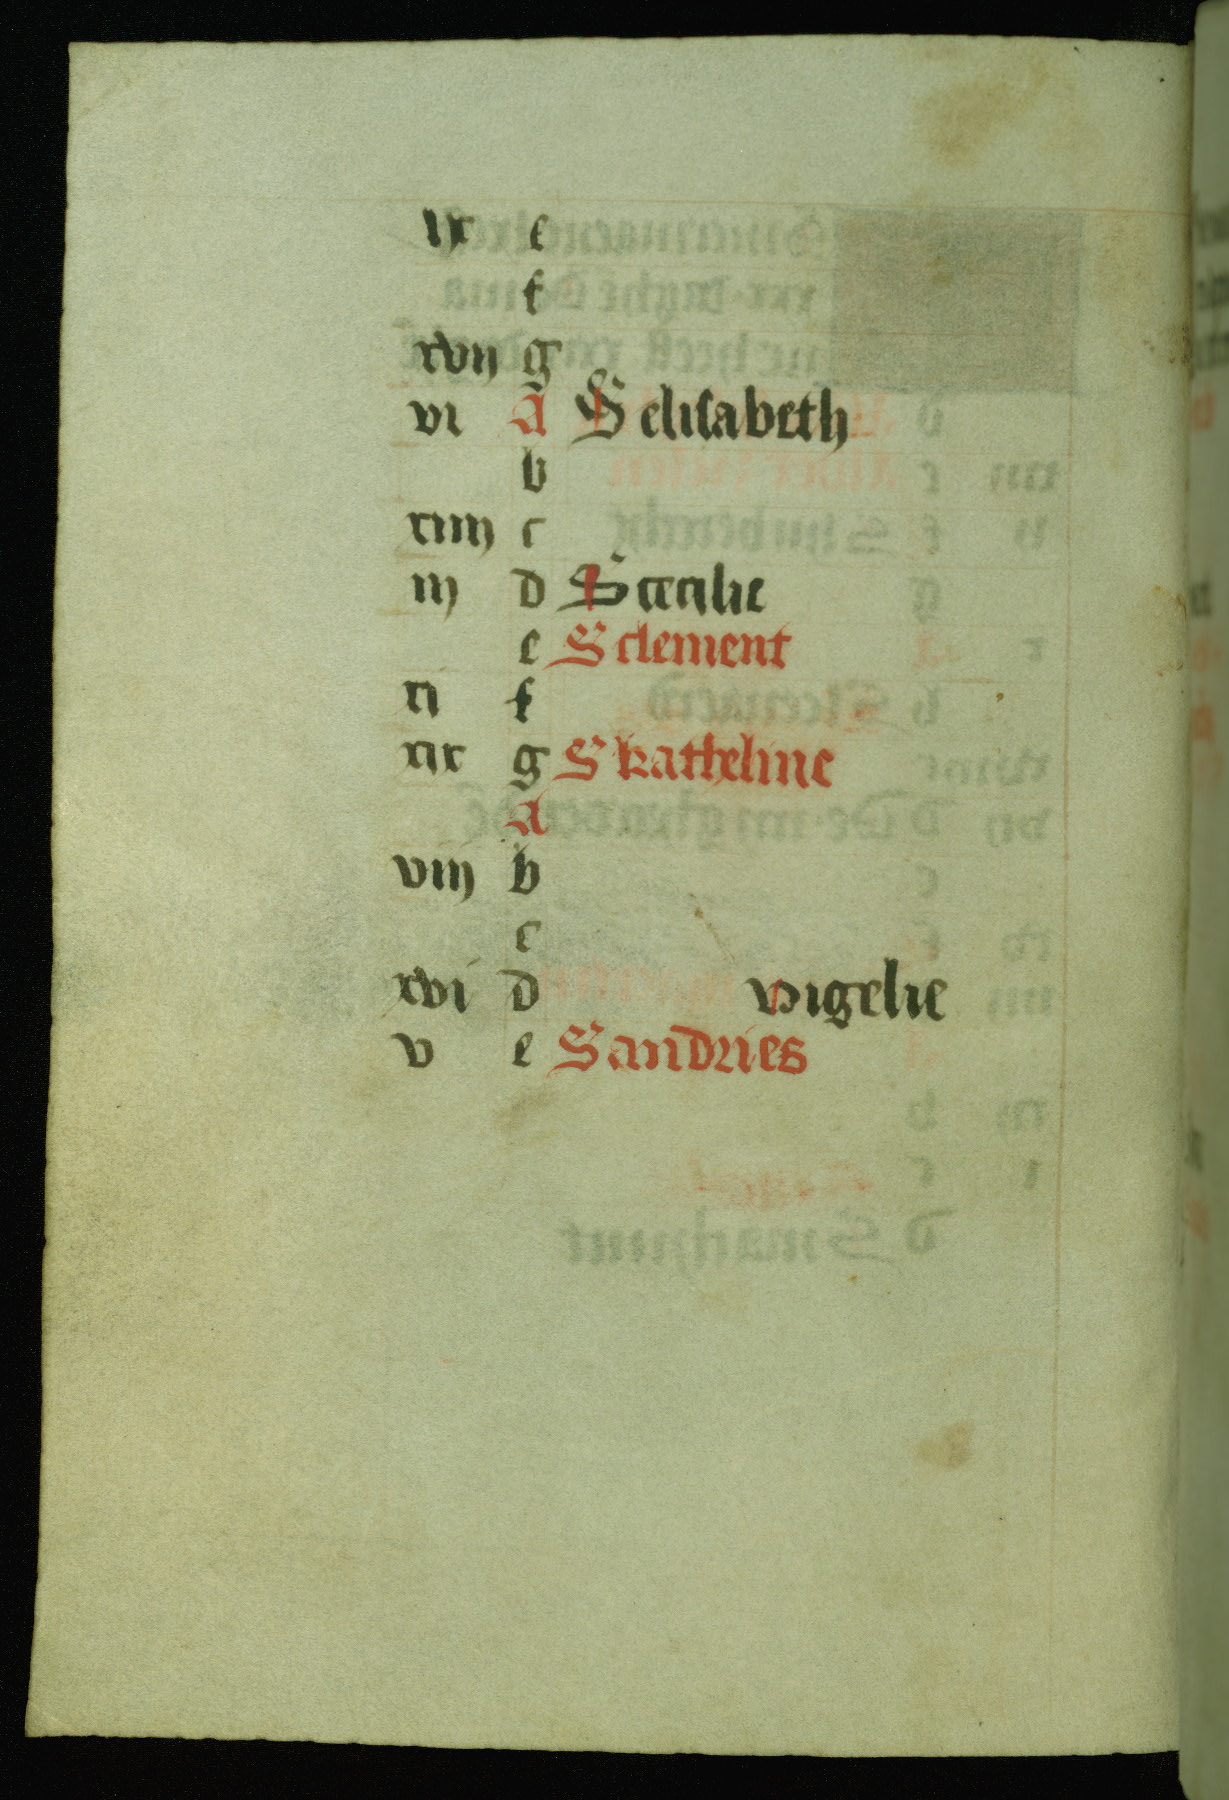 ix e
f
xvij g
vi A S elisabeth
b
xiiij c
iij d S cecilie
e S clement
xi f
xix g S katheline
A
viij b
c
xvi d vigelie
v e S andries